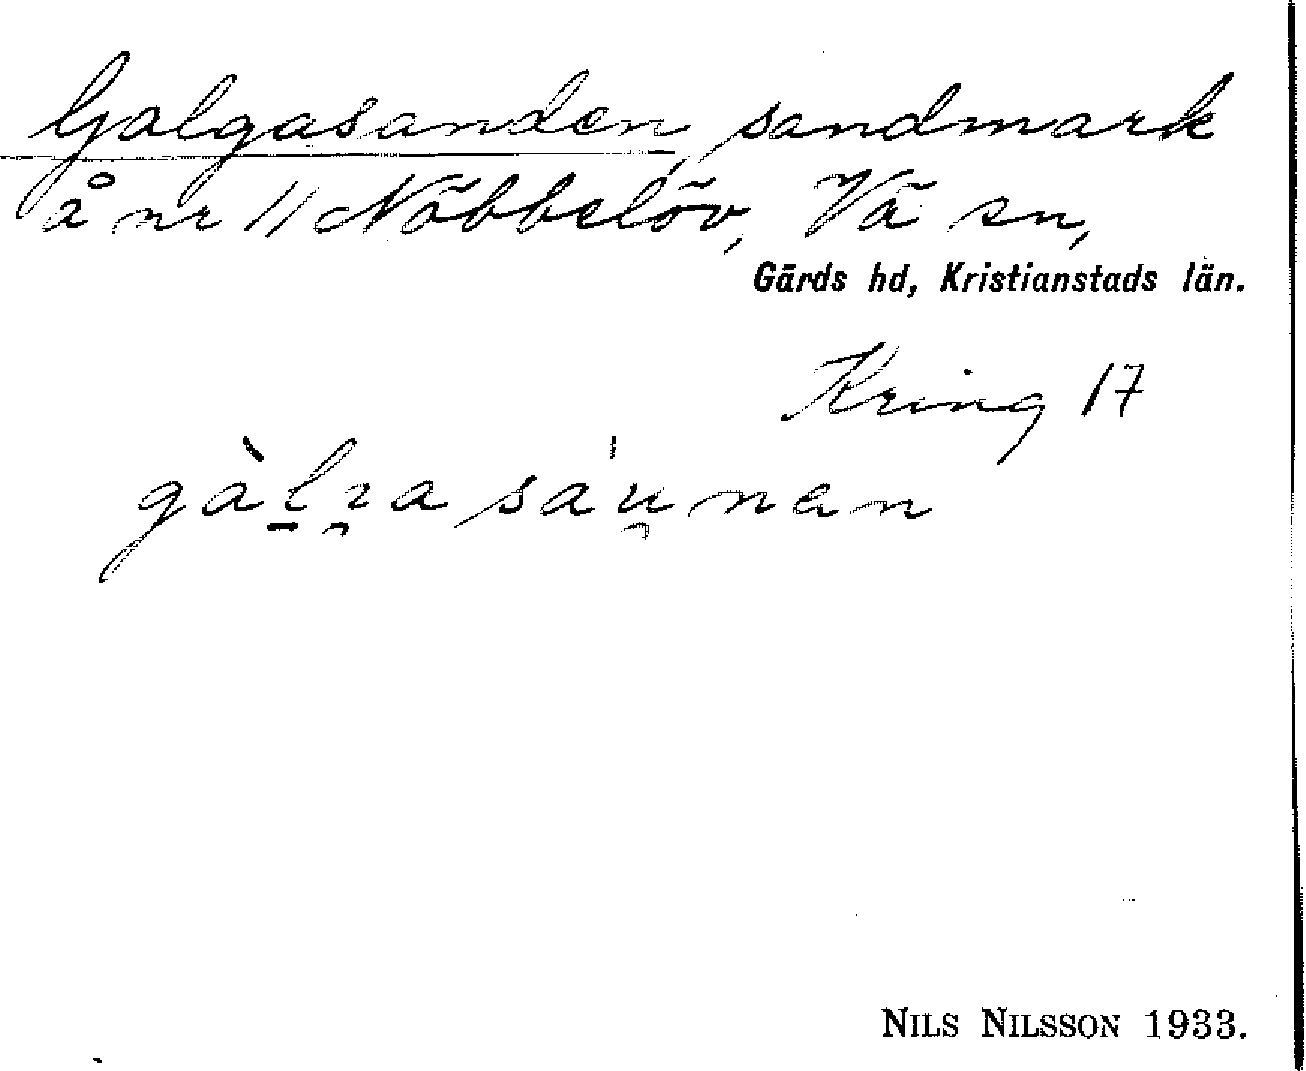 Galgasanden, sandmark
å nr 11 Näbbelöv, Vä sn,
Gärds hd, Kristianstads län.
Kring 17
NILS NILSSON 1933.